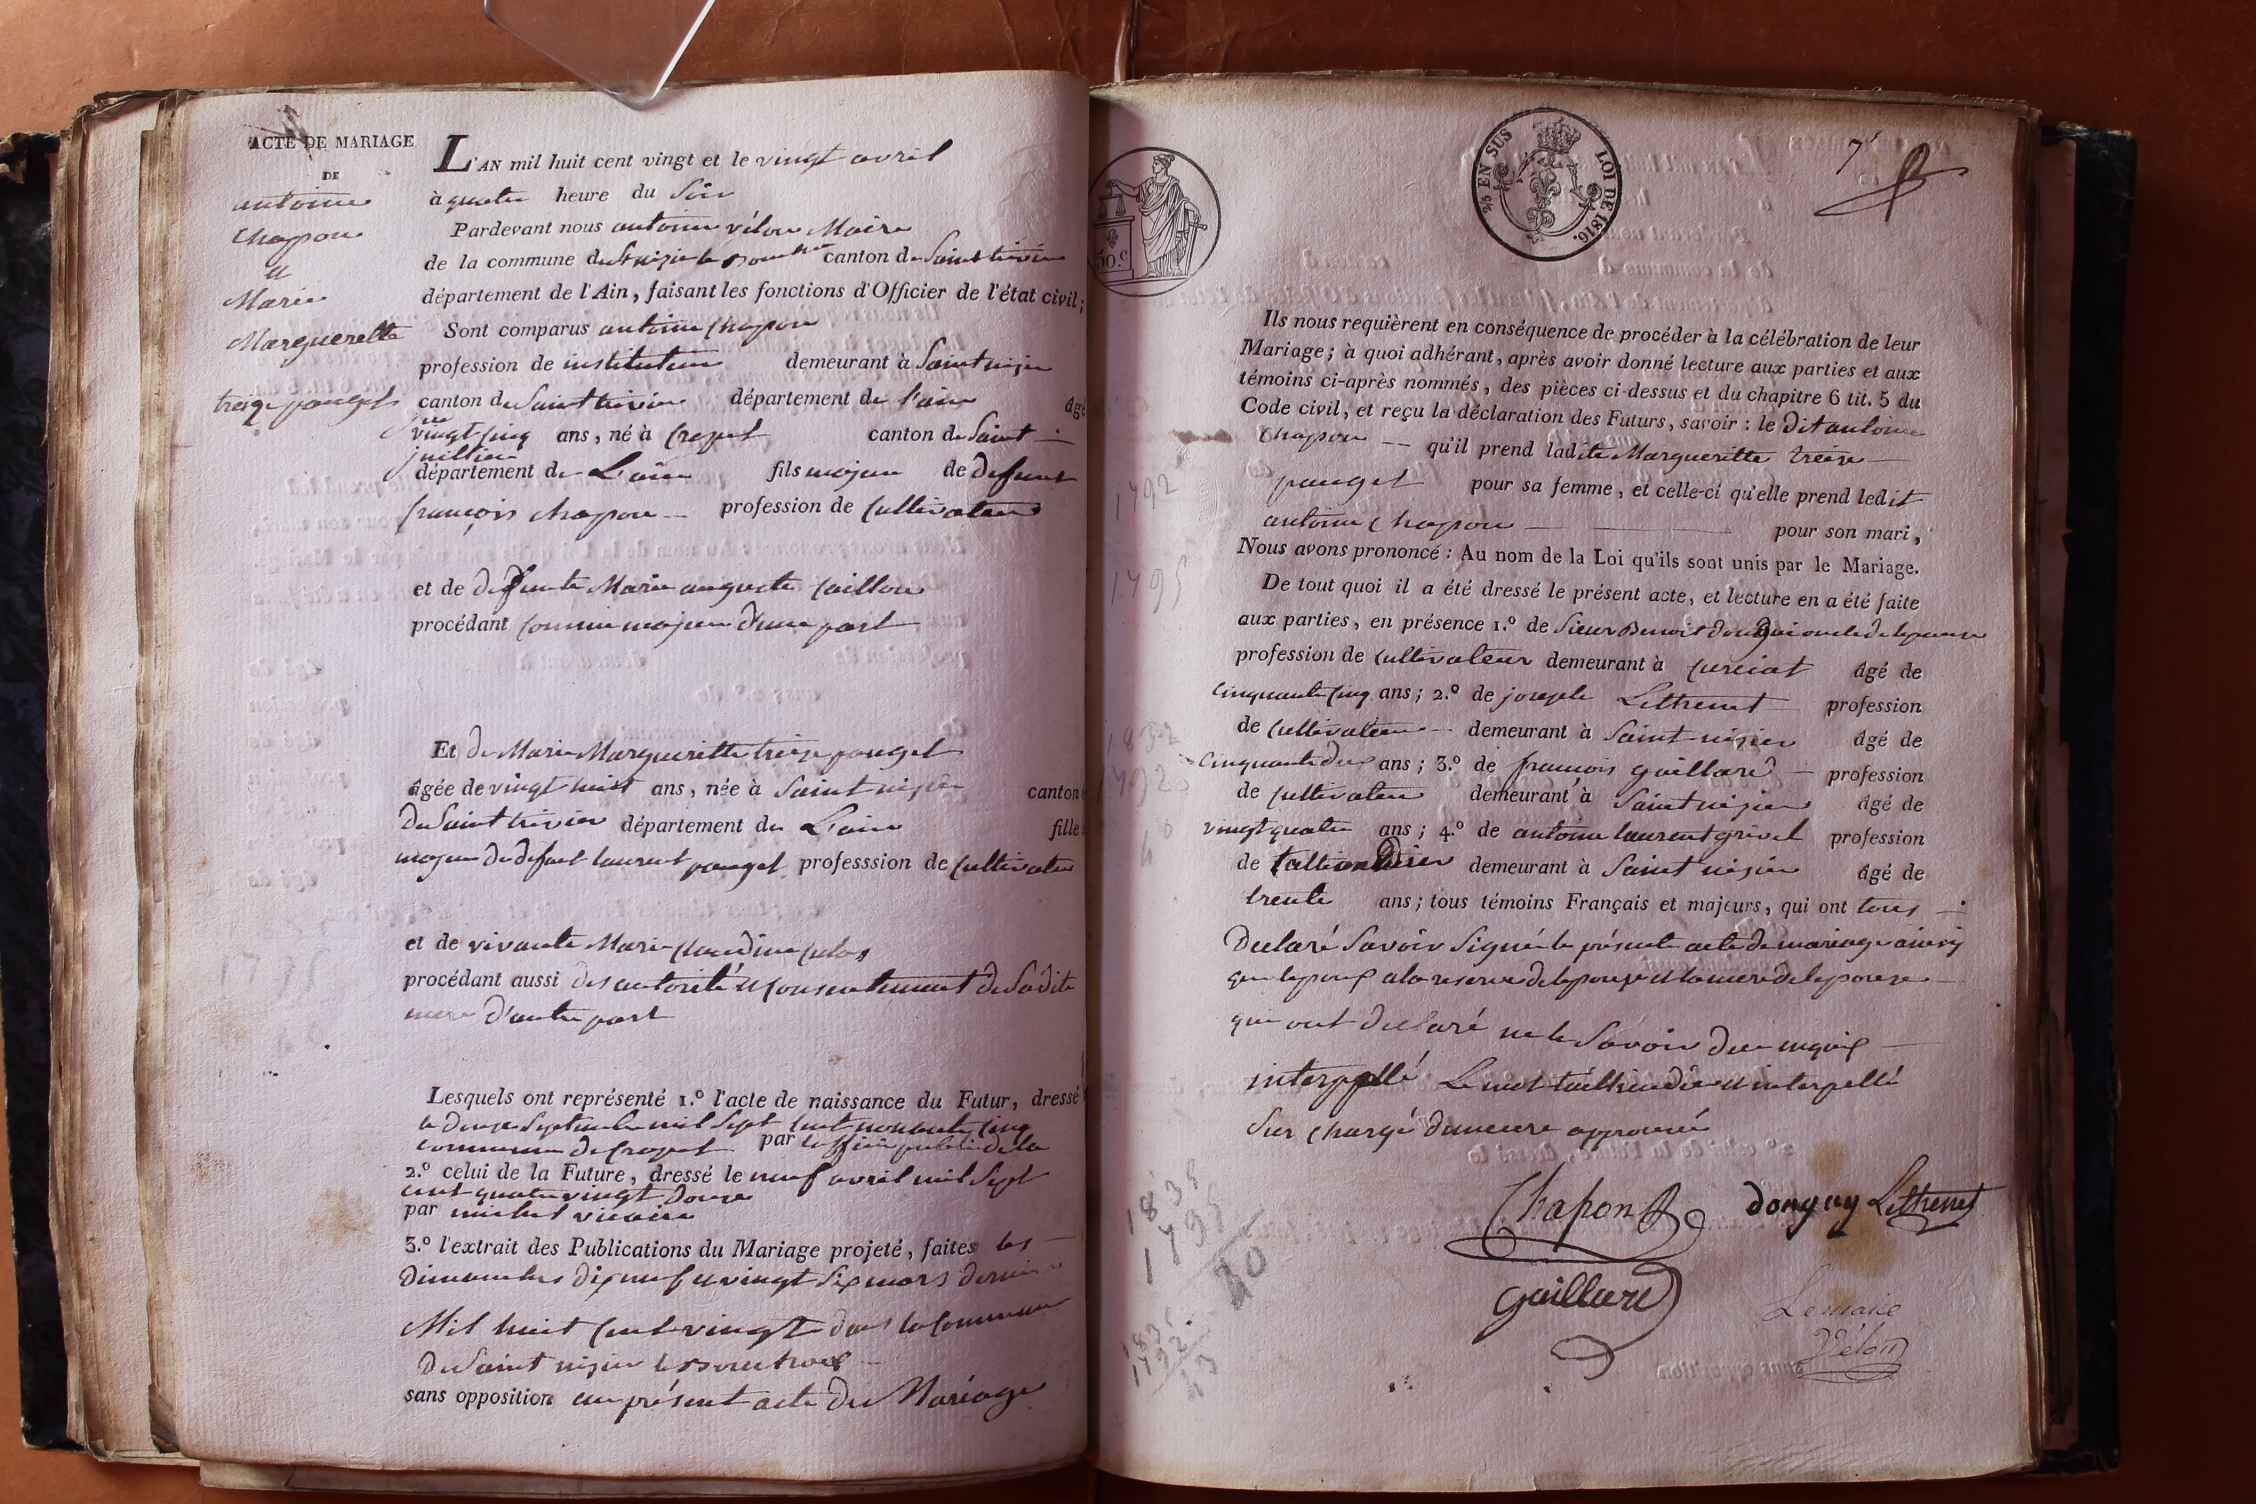 ACTE DE MARIAGE
DE
antoine
chapon
et
Marie
Marguerette
treize pouget
L'AN mil huit cent vingt et le vingt avril
à quatre heure du soir
Pardevant nous antoine vélon Maire
de la commune de St nizier le canton de Saint trivier
département de l'Ain, faisant les fonctions d'Officier de l'état civil;
Sont comparus antoine chapon
profession de instituteur demeurant à Saint nizier
canton de Saint trivier département de l'ain âgé
de vingt cinq ans, né à crozet canton de Saint
juillien
département de L'ain fils majeur de defunt
françois chapon profession de cultivateur
et de defunte Marie auguste caillon
procédant comme majeur d'une part
Et de Marie Margueritte treize pouget
âgée de vingt huit ans, née à Saint nizier canton
de Saint trivier département de L'ain fille
majeure de defunt laurent pouget professsion de cultivateur
et de vivante Marie claudine
procédant aussi des autorité et consentement de Sadite
mere d'autre part
Lesquels ont représenté 1.º l'acte de naissance du Futur, dressé
le douze Septembre mil Sept cent nonante cinq
commune de crozet par l'officier public de la
2.º celui de la Future, dressé le neuf avril mil Sept
cent quatre vingt douze
par michel vicaire
3.º l'extrait des Publications du Mariage projeté, faites les
Dimanches dix neuf et vingt Six mars dernier
Mil huit cent vingt dans la commune
de Saint nizier le bouchoux
sans opposition au présent acte de Mariage
50.c
25 EN SUS
LOI DE 1816.
7
Ils nous requièrent en conséquence de procéder à la célébration de leur
Mariage; à quoi adhérant, après avoir donné lecture aux parties et aux
témoins ci-après nommés, des pièces ci-dessus et du chapitre 6 tit. 5 du
Code civil, et reçu la déclaration des Futurs, savoir: le dit antoine
chapon qu'il prend ladite Marguerette treize
pouget pour sa femme, et celle-ci qu'elle prend ledit
antoine chapon pour son mari,
Nous avons prononcé: Au nom de la Loi qu'ils sont unis par le Mariage.
De tout quoi il a été dressé le présent acte, et lecture en a été faite
aux parties, en présence 1.º de Sieur Benoit donguy oncle de lepouse
profession de cultivateur demeurant à curciat âgé de
cinquante cinq ans; 2.º de joseph Lethenet profession
de cultivateur demeurant à Saint nizier âgé de
cinquante deux ans; 3.º de françois gaillard profession
de cultivateur demeurant à Saint nizier âgé de
vingt quatre ans; 4.º de antoine laurent grivel profession
de demeurant à Saint nizier âgé de
trente ans; tous témoins Français et majeurs, qui ont tous
Declaré Savoir Signé le présente acte de mariage ainsy
que lepoux a la reserve de lepouse et la mere de lepouse
qui ont declaré ne le Savoir de ce requis
interppellé Le mot et interpellé
Sur chargé demeure approuvé
Chapon donguy Lethenet
Gaillard
Le maire
Vélon
1792
1795
1832
1792
40
1835
1795
40
1835
1792
43